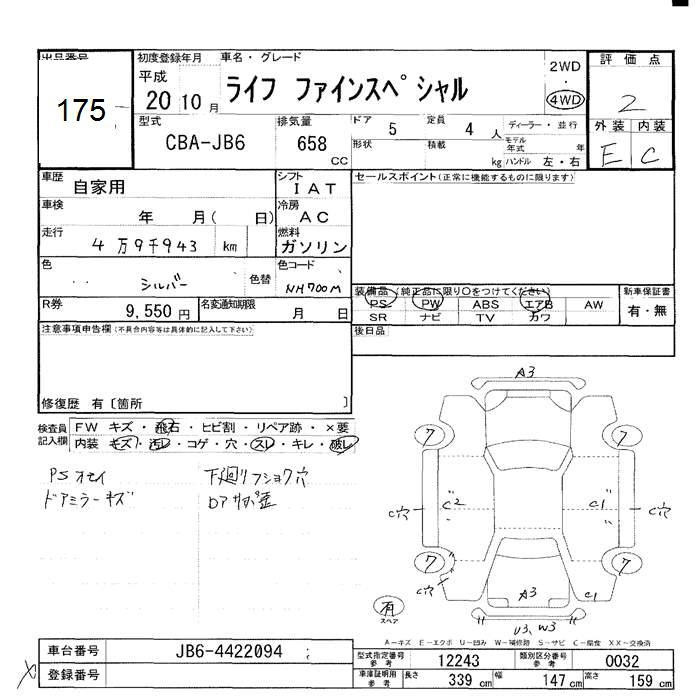 出品番号
175
初度登録年月
平成
20 10 月
車名・グレード
ライフ ファインスペシャル
2WD
・
4WD
評価点
2
外装 内装
E C
型式
CBA-JB6
排気量
658
CC
ドア
5
定員
4 人
形状
積載
kg
ディーラー・並行
モデル年式 年
ハンドル 左・右
車歴
自家用
シフト
IAT
車検
年 月( 日)
冷房
AC
走行
4万9千943 km
燃料
ガソリン
色
シルバー
色替
色コード
NH700M
R券
9,550 円
名変通知期限
月 日
セールスポイント(正常に機能するものに限ります)
装備品 (純正品に限り○をつけてください)
PS PW ABS エアB AW
SR ナビ TV カワ
新車保証書
有・無
後日品
注意事項申告欄(不具合内容等は具体的に記入して下さい)
修復歴 有〔箇所 〕
検査員記入欄
FW キズ・飛石・ヒビ割・リペア跡・×要
内装 キズ・汚レ・コゲ・穴・スレ・キレ・破レ
PSオモイ
ドアミラーキズ
下廻リフショク穴
A3
7 7
C穴 C2 C1 C穴
7 7
C穴
A3
C1
U3、W3
有
スペア
A-キズ E-エクボ U-凹み W-補修跡 S-サビ C-腐食 XX-交換済
車台番号
JB6-4422094
登録番号
型式指定番号 参考
12243
類別区分番号 参考
0032
車庫証明用 参考
長さ 339 cm 幅 147 cm 高さ 159 cm